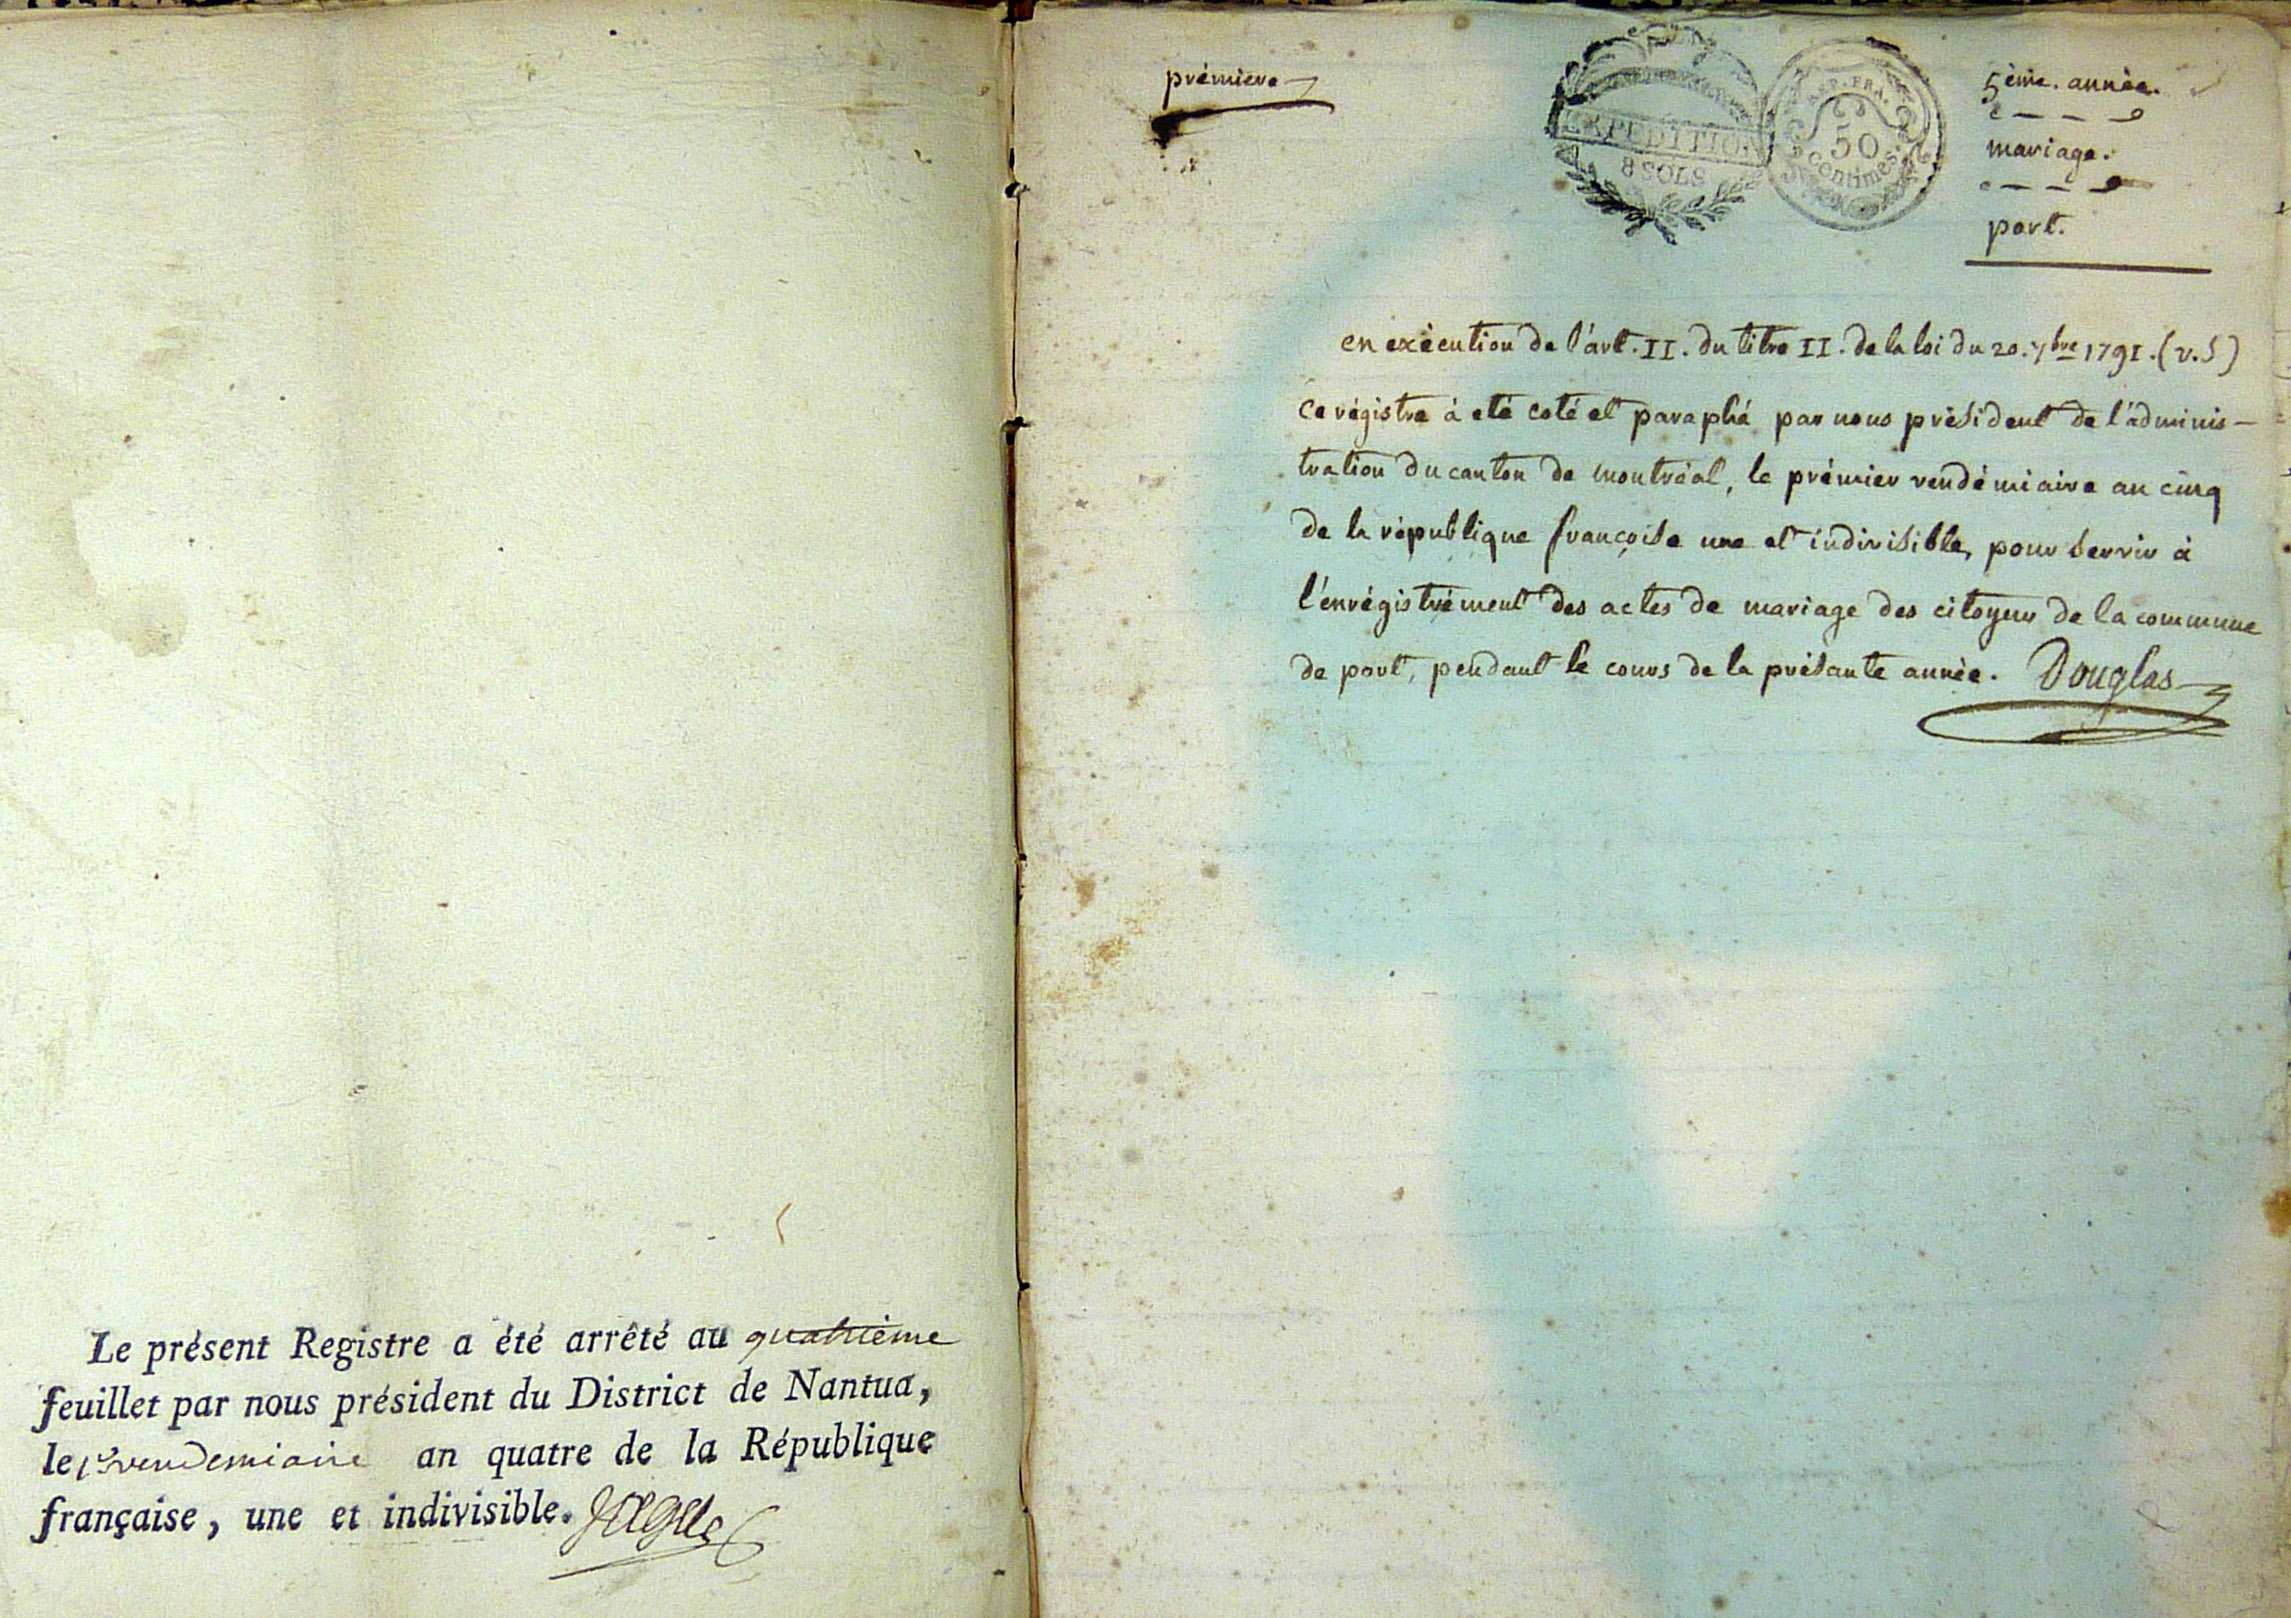 Le présent Registre a été arrêté au quatrième
feuillet par nous président du District de Nantua,
le 1er vendemiaire an quatre de la République
française, une et indivisible.
prémiere
EXPEDITION
8 SOLS
REP. FRA.
50
centimes.
5ème. année.
mariage.
port.
en exècution de l'árt. II. du titre II. de la loi du 20. 7bre 1791. (v. S)
ce régistre à eté coté et paraphé par nous présídent de l'ádminis-
tration du canton de montréal, le prémier vendémiaire an cinq
de la république françoise une et indivisible, pour servir à
l'enrégistrément des actes de mariage des citoyens de la commune
de port, pendant le cours de la présante année. Douglas